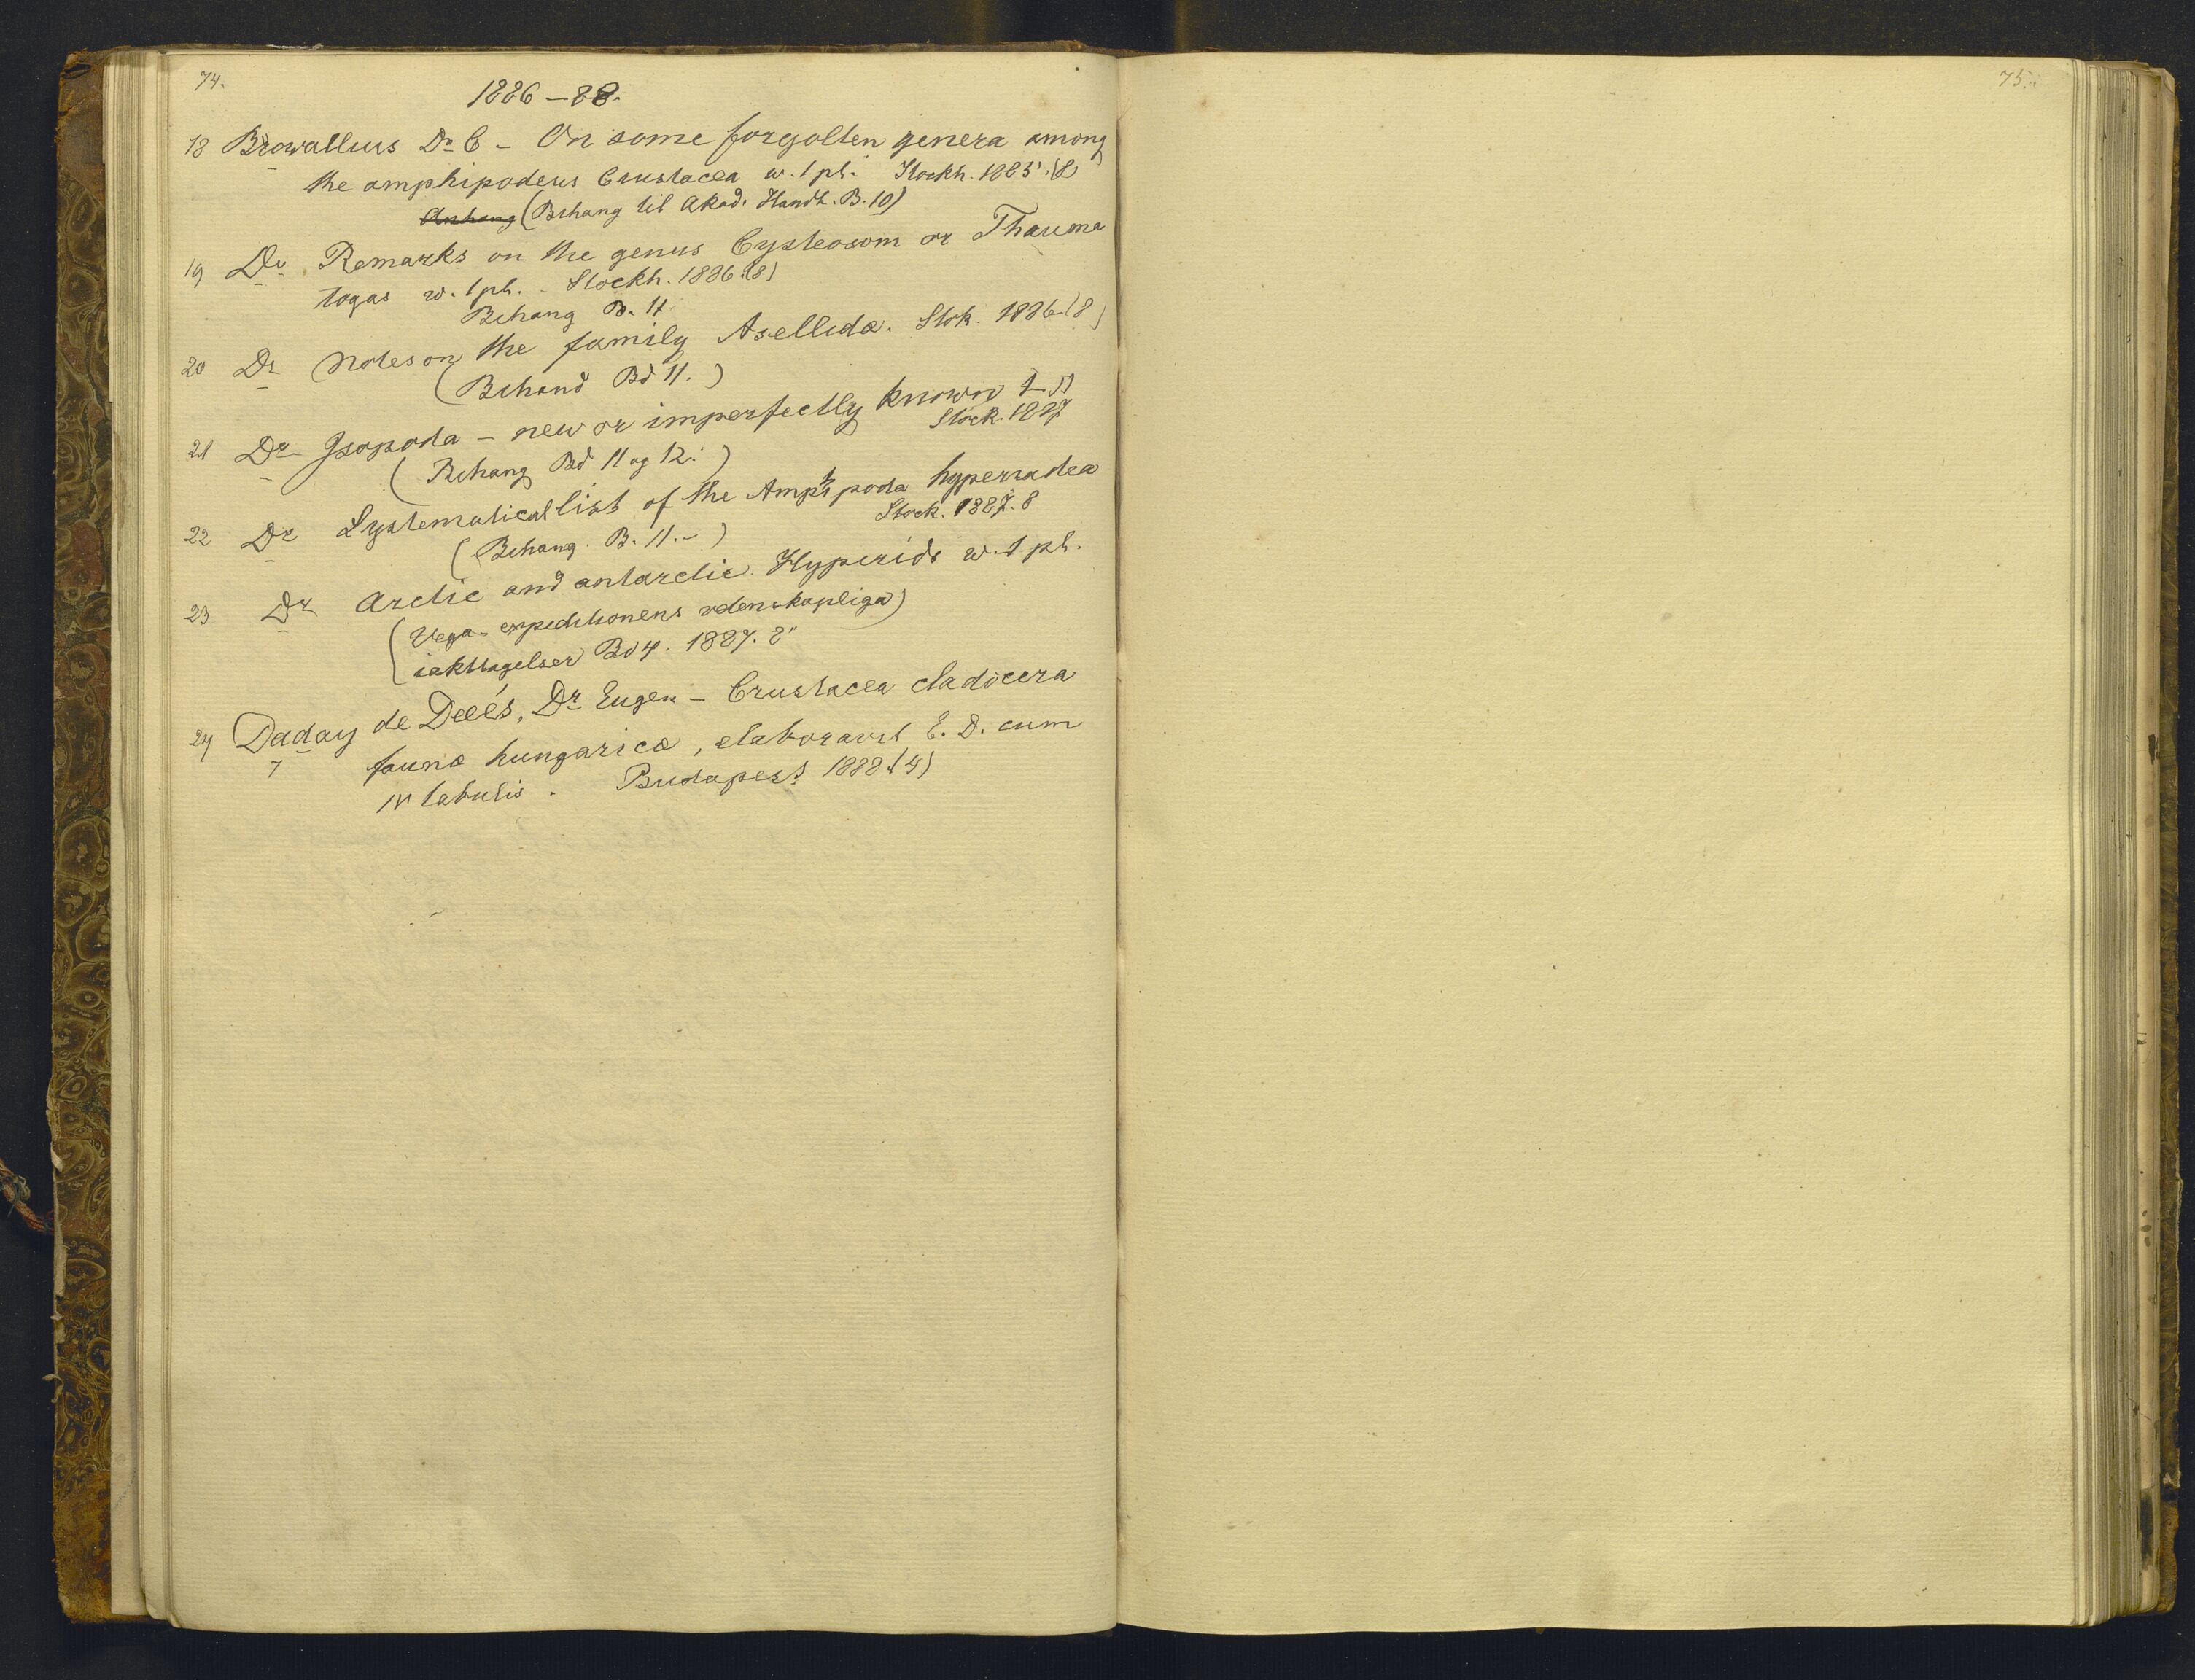 74.
1886 – 88.
18 Browallius Dr C – On some forgotten genera among
the amphipodeus Crustacea w. 1 pl. Stockh. 1885. (8)
Anhang (Bihang til Akad. Handl. B. 10)
19 Do Remarks on the genus Cysteosom or Thauma
togas w. 1 pl. – Stockh. 1886 (8)
Bihang B. 11
20 Do Notes on the family Asellidæ. Stok. 1886 (8)
(Bihand Bd 11.)
21 Do Isopoda – new or imperfectly known 1–
Stock. 1887
(Bihang Bd 11 og 12.)
22 Do Systematical list of the Amphipoda hyperiadea
Stock. 1887. 8
(Bihang. B. 11. –)
23 Do Arctic and antarctic Hyperids w. 1 pl.
(Vega-expeditionens vdenskapliga)
iakttagelser Bd 4. 1887. 8"
24 Daday de Deés, Dr Eugen – Crustacea cladocera
faunæ hungaricæ, elaboravit E. D. cum
IV tabulis. Budapest 1888 (4)
75.